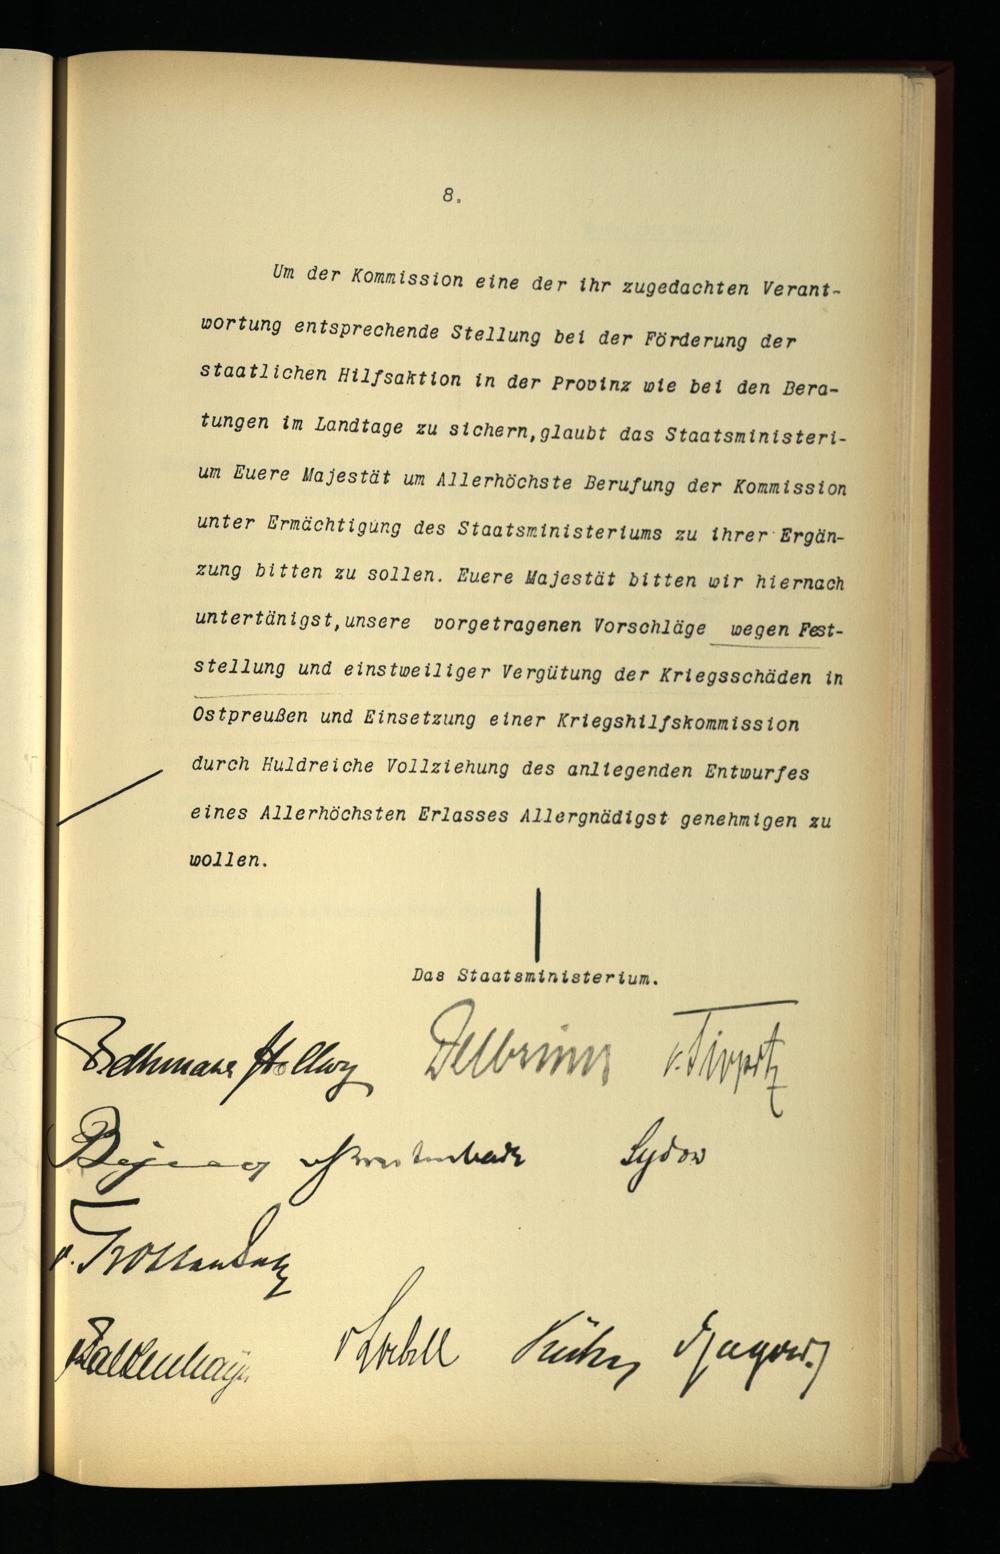 8.
Um der Kommission eine der ihr zugedachten Verant-
wortung entsprechende Stellung bei der Förderung der
staatlichen Hilfsaktion in der Provinz wie bei den Bera-
tungen im Landtage zu sichern, glaubt das Staatsministeri-
um Euere Majestät um Allerhöchste Berufung der Kommission
unter Ermächtigung des Staatsministeriums zu ihrer Ergän-
zung bitten zu sollen. Euere Majestät bitten wir hiernach
untertänigst, unsere vorgetragenen Vorschläge wegen Fest-
stellung und einstweiliger Vergütung der Kriegsschäden in
Ostpreußen und Einsetzung einer Kriegshilfskommission
durch Huldreiche Vollziehung des anliegenden Entwurfes
eines Allerhöchsten Erlasses Allergnädigst genehmigen zu
wollen.
Das Staatsministerium.
Bethmann Hollweg Delbrück v. Tirpitz
Sydow
v. Trott zu Solz
Falkenhayn v Loebell Kühn v Jagow.